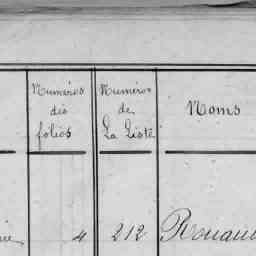 Numéros des folios
Numéros de La Liste
Noms
4 212